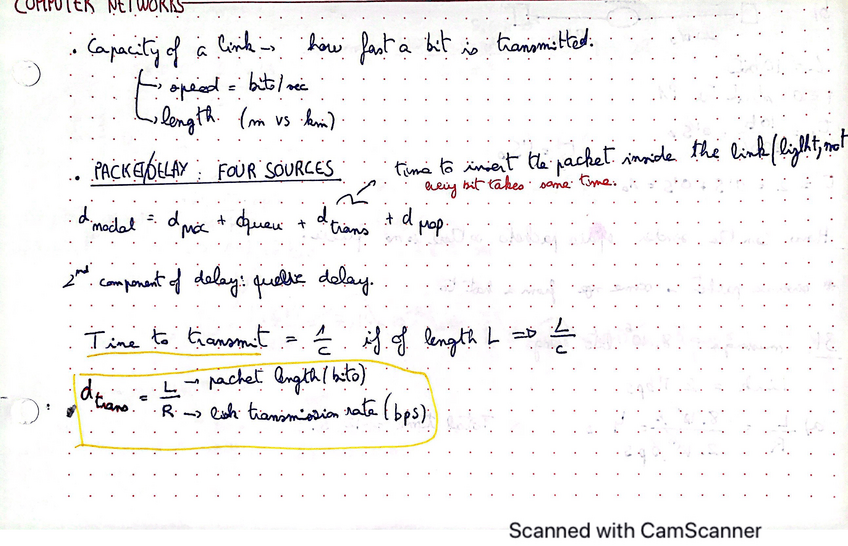 COMPUTER NETWORKS
. Capacity of a link → how fast a bit is transmitted.
→ speed = bits/sec
→ length (m vs km)
. PACKET/DELAY: FOUR SOURCES
time to insert the packet inside the link (light, not
every bit takes same time.
d nodal = d proc + dqueue + d trans + d prop
2nd component of delay: queue delay.
Time to transmit = 1/C if of length L => L/C
d trans = L/R
L → packet length (bits)
R → link transmission rate (bps)
Scanned with CamScanner